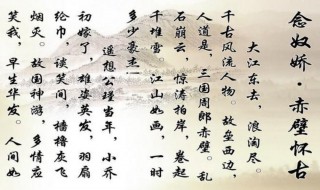 念奴娇·赤壁怀古
大江东去，浪淘尽。
千古风流人物。故垒西边，
人道是，三国周郎赤壁。乱
石崩云，惊涛拍岸，卷起
千堆雪。江山如画，一时
多少豪杰。
遥想公瑾当年，小乔
初嫁了，雄姿英发，羽扇
纶巾，谈笑间，樯橹灰飞
烟灭。故国神游，多情应
笑我，早生华发。人间如